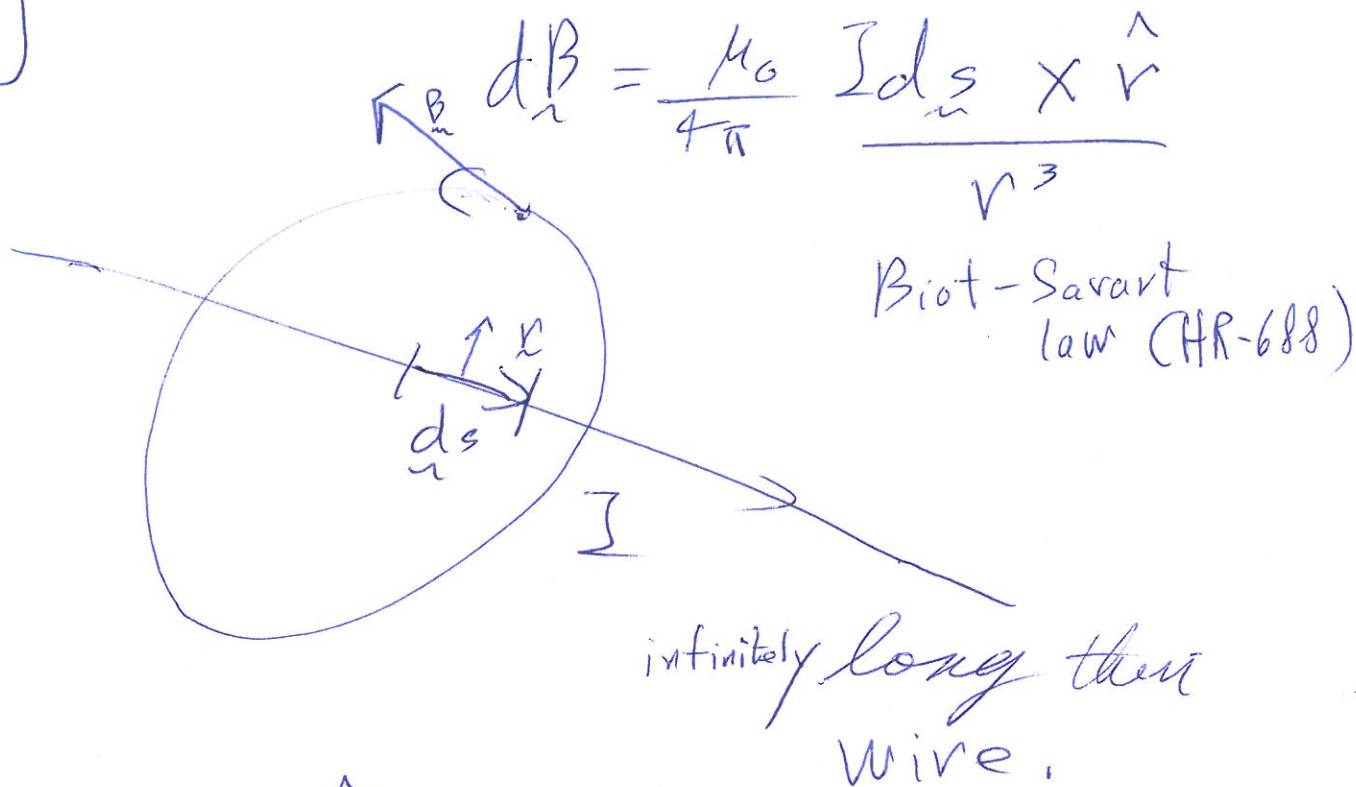 dB = μ₀/4π I ds × r̂ / r³
B
Biot-Savart
law (HR-688)
r
ds
I
infinitely long thin
wire.